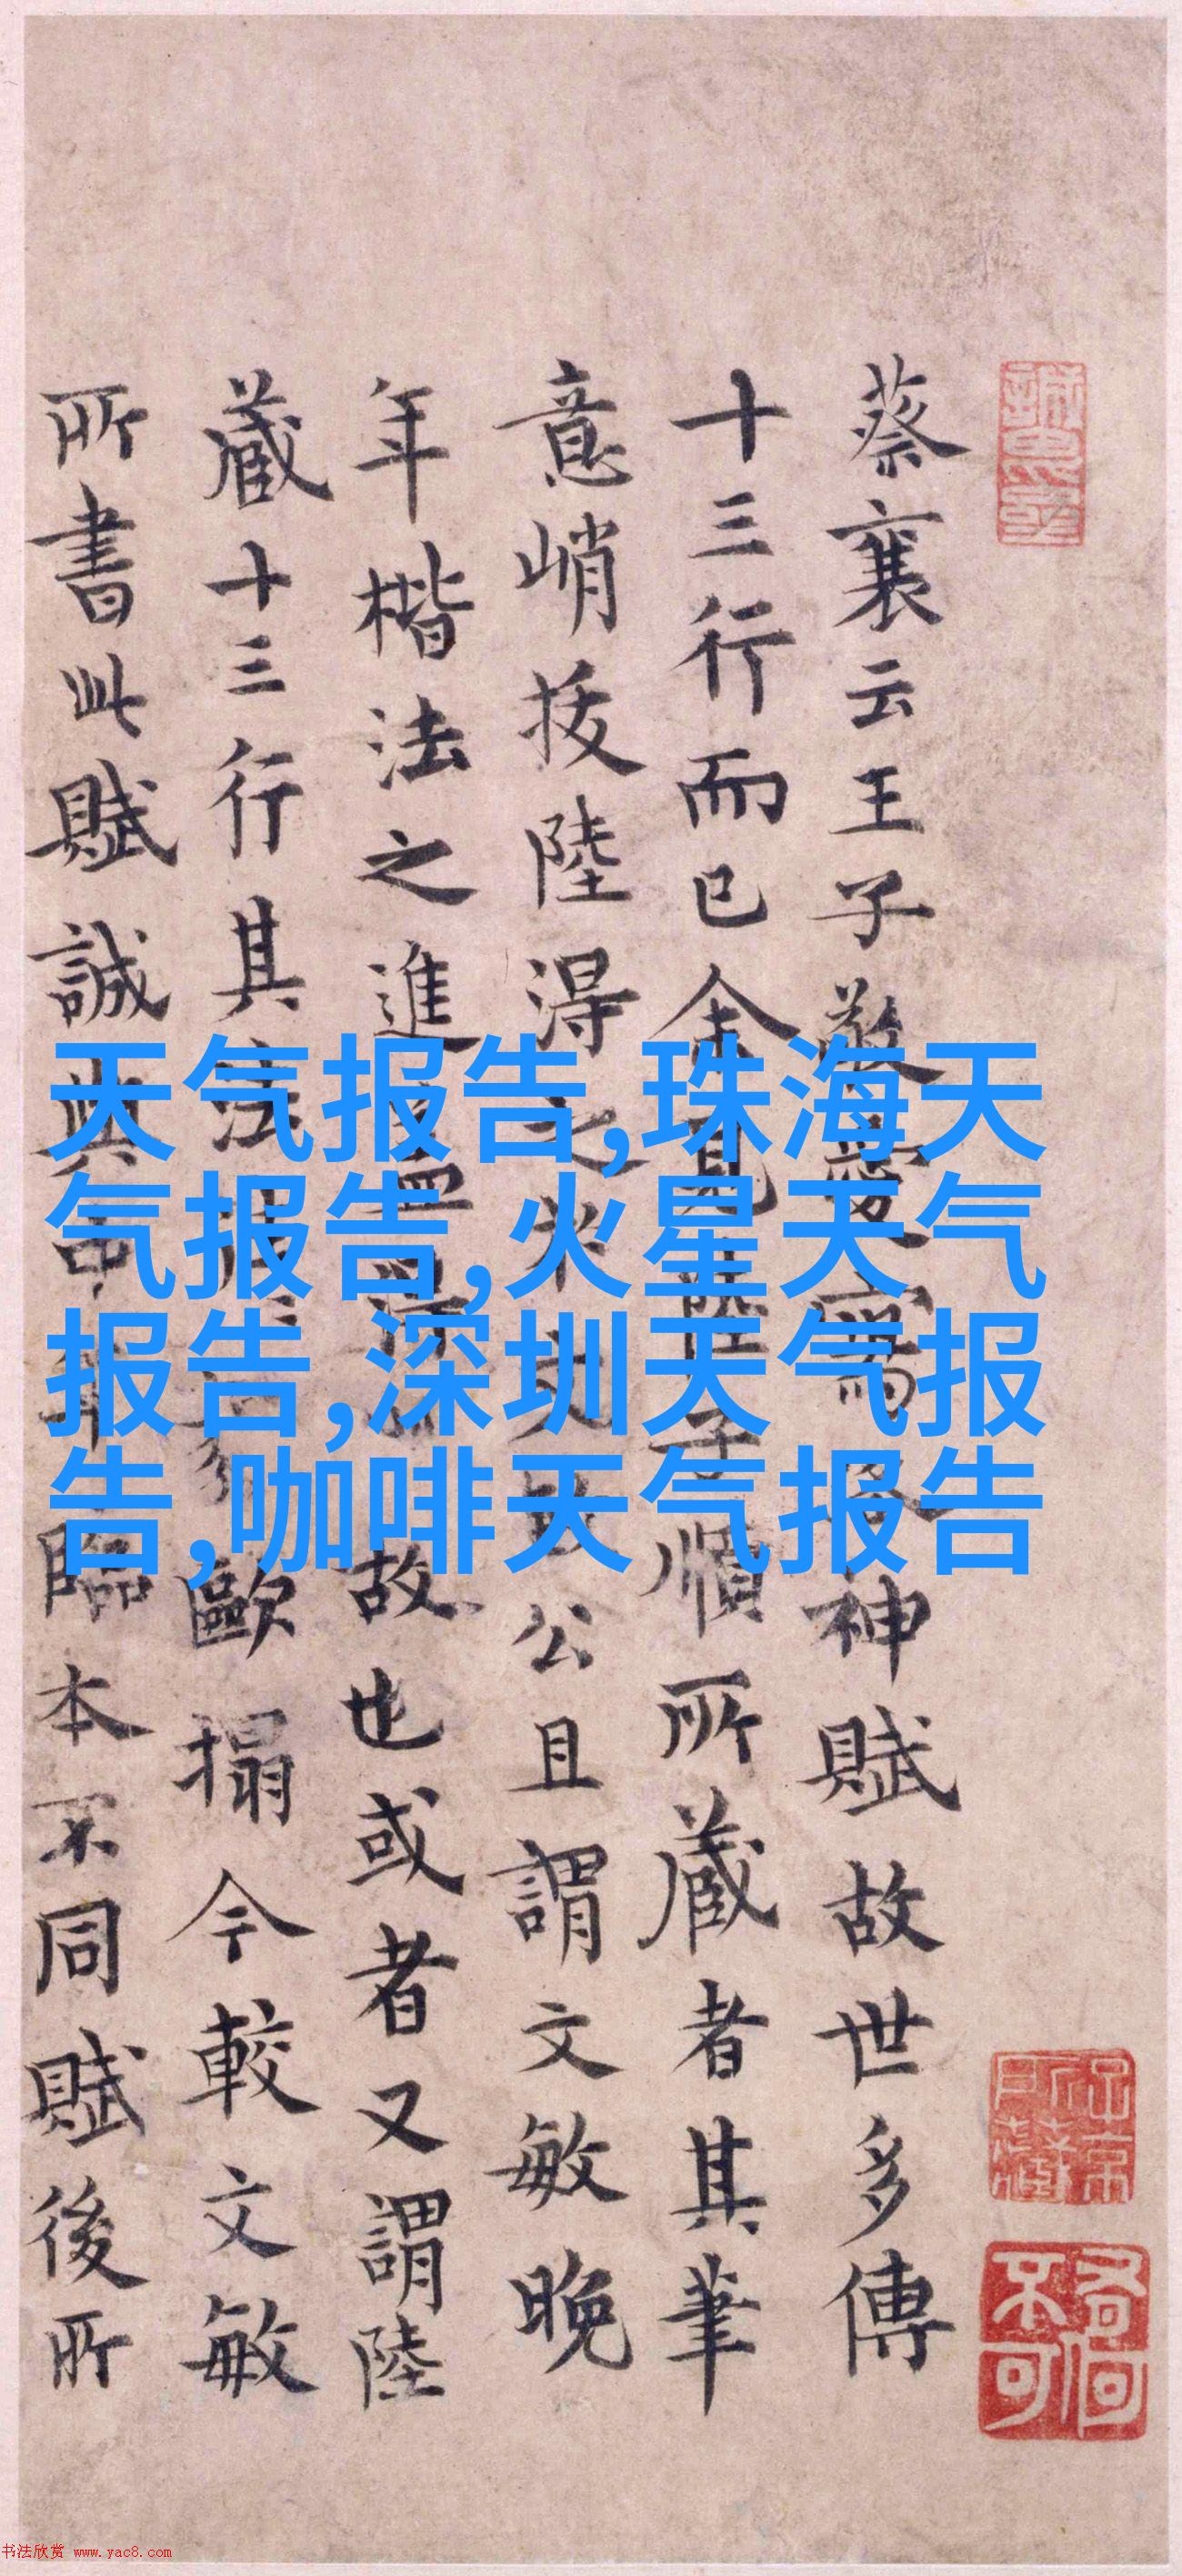 蔡襄云王子敬愛寫洛神賦故世多傳
十三行而已余見陸子順所藏者其筆
意峭拔陸得之朱文公且謂文敏晚
年楷法之進蓋得此故也或者又謂陸
藏十三行其法歐搨今較文敏
所書此賦誠與中年臨本不同賦後所
天气报告,珠海天
气报告,火星天气
报告,深圳天气报
告,咖啡天气报告
奇何
不可
书法欣赏 www.yac8.com